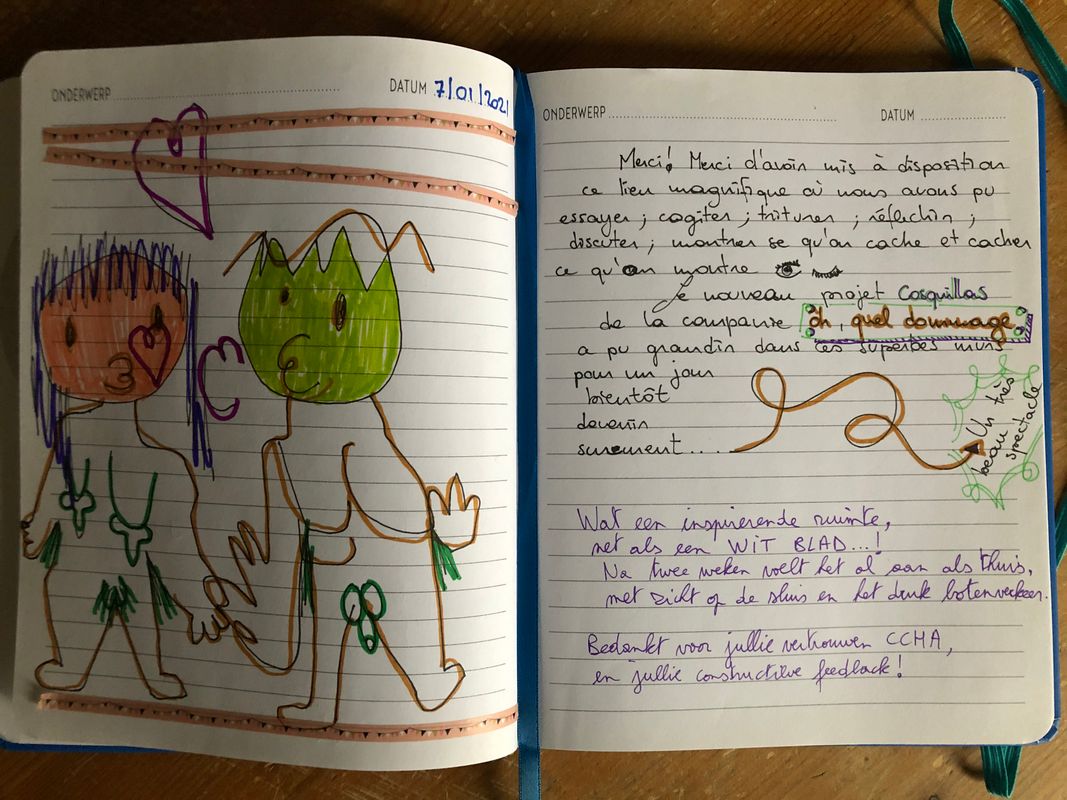 ONDERWERP
DATUM 7/01/2021
ONDERWERP
DATUM
Merci! Merci d'avoir mis à disposition
ce lieu magnifique où nous avons pu
essayer ; cogiter ; triturer ; réflechir ;
discuter ; montrer se qu'on cache et cacher
ce qu'on montre
Le nouveau projet Cosquillas
de la companie oh, quel dommage
a pu grandir dans ces superbes murs
pour un jour
bientôt
devenir
surement....
Un très
beau
spectacle
Wat een inspirerende ruimte,
net als een WIT BLAD...!
Na twee weken voelt het al aan als thuis,
met zicht op de sluis en het druk botenverkeer.
Bedankt voor jullie vertrouwen CCHA,
en jullie constructieve feedback!